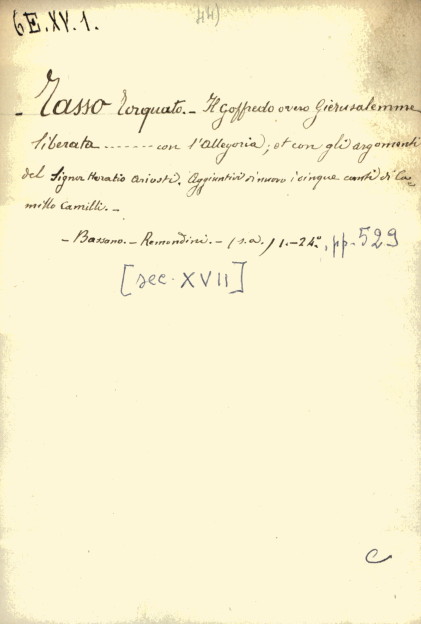 6E.XV.1.
44)
- Tasso Torquato. - Il Goffredo overo Gierusalemme
liberata ........ con l'Allegoria; et con gli argomenti
del Signor Horatio Ariosti. Aggiuntivi di nuovo i cinque canti di Ca-
millo Camilli. -
- Bassano. - Remondini. - (s.a.) 1. - 24.°, pp. 529
[sec. XVII]
C